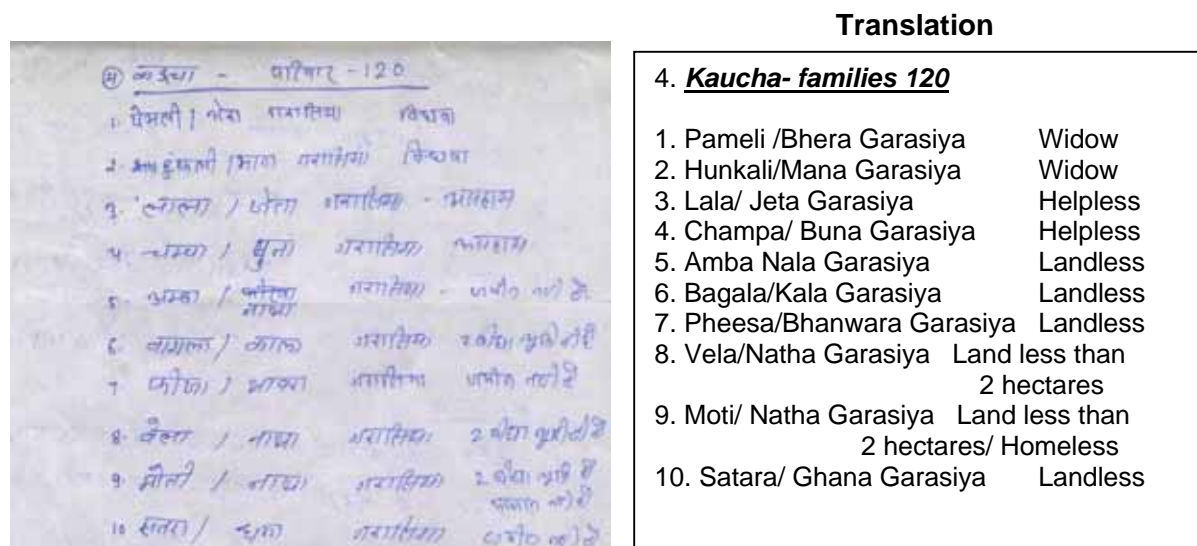 Translation
④ कउचा - परिवार - 120
1. पेमली / भेरा गरासिया विधवा
2. हुंकली / माना गरासिया विधवा
3. लाला / जेता गरासिया - असहाय
4. चम्पा / बुना गरासिया असहाय
5. अम्बा / गरासिया - जमीन नहीं है
नाथा
6. बागला / काला गरासिया 2 बीघा भूमि
7 गरासिया जमीन नहीं है
8. वेला / नाथा गरासिया 2 बीघा भूमि
9 मोती / नाथा गरासिया 2 बीघा भूमि है
मकान नहीं है
10 सतरा / गरासिया जमीन नहीं है
4. Kaucha- families 120
1. Pameli /Bhera Garasiya Widow
2. Hunkali/Mana Garasiya Widow
3. Lala/ Jeta Garasiya Helpless
4. Champa/ Buna Garasiya Helpless
5. Amba Nala Garasiya Landless
6. Bagala/Kala Garasiya Landless
7. Pheesa/Bhanwara Garasiya Landless
8. Vela/Natha Garasiya Land less than
2 hectares
9. Moti/ Natha Garasiya Land less than
2 hectares/ Homeless
10. Satara/ Ghana Garasiya Landless